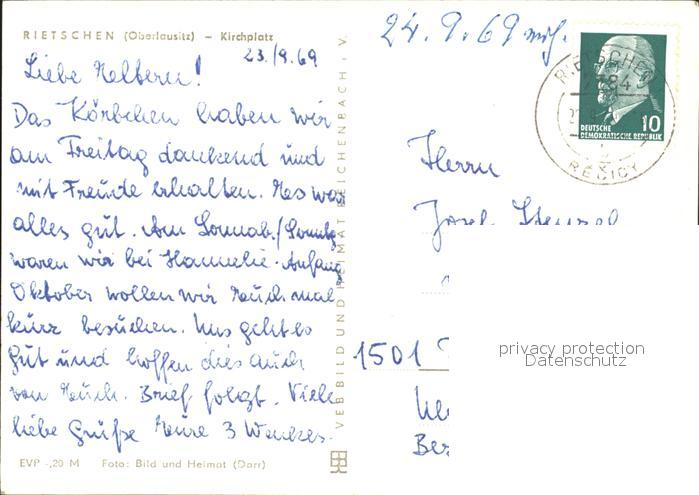 RIETSCHEN (Oberlausitz) – Kirchplatz
23./9.69
Liebe Eltern!
Das Körbchen haben wir
am Freitag dankend und
mit Freude erhalten. Es war
alles gut. Am Sonnab./Sonntg
waren wir bei Hannelie. Anfang
Oktober wollen wir Euch mal
kurz besuchen. Uns geht es
gut und hoffen dies auch
von Euch. Brief folgt. Viele
liebe Grüße Eure 3
EVP -,20 M Foto: Bild und Heimat (Darr)
VEB BILD UND HEIMAT REICHENBACH i. V.
24.9.69
RIETSCHEN
10
DEUTSCHE
DEMOKRATISCHE REPUBLIK
Herrn
Josef Stenzel
1501
privacy protection
Datenschutz